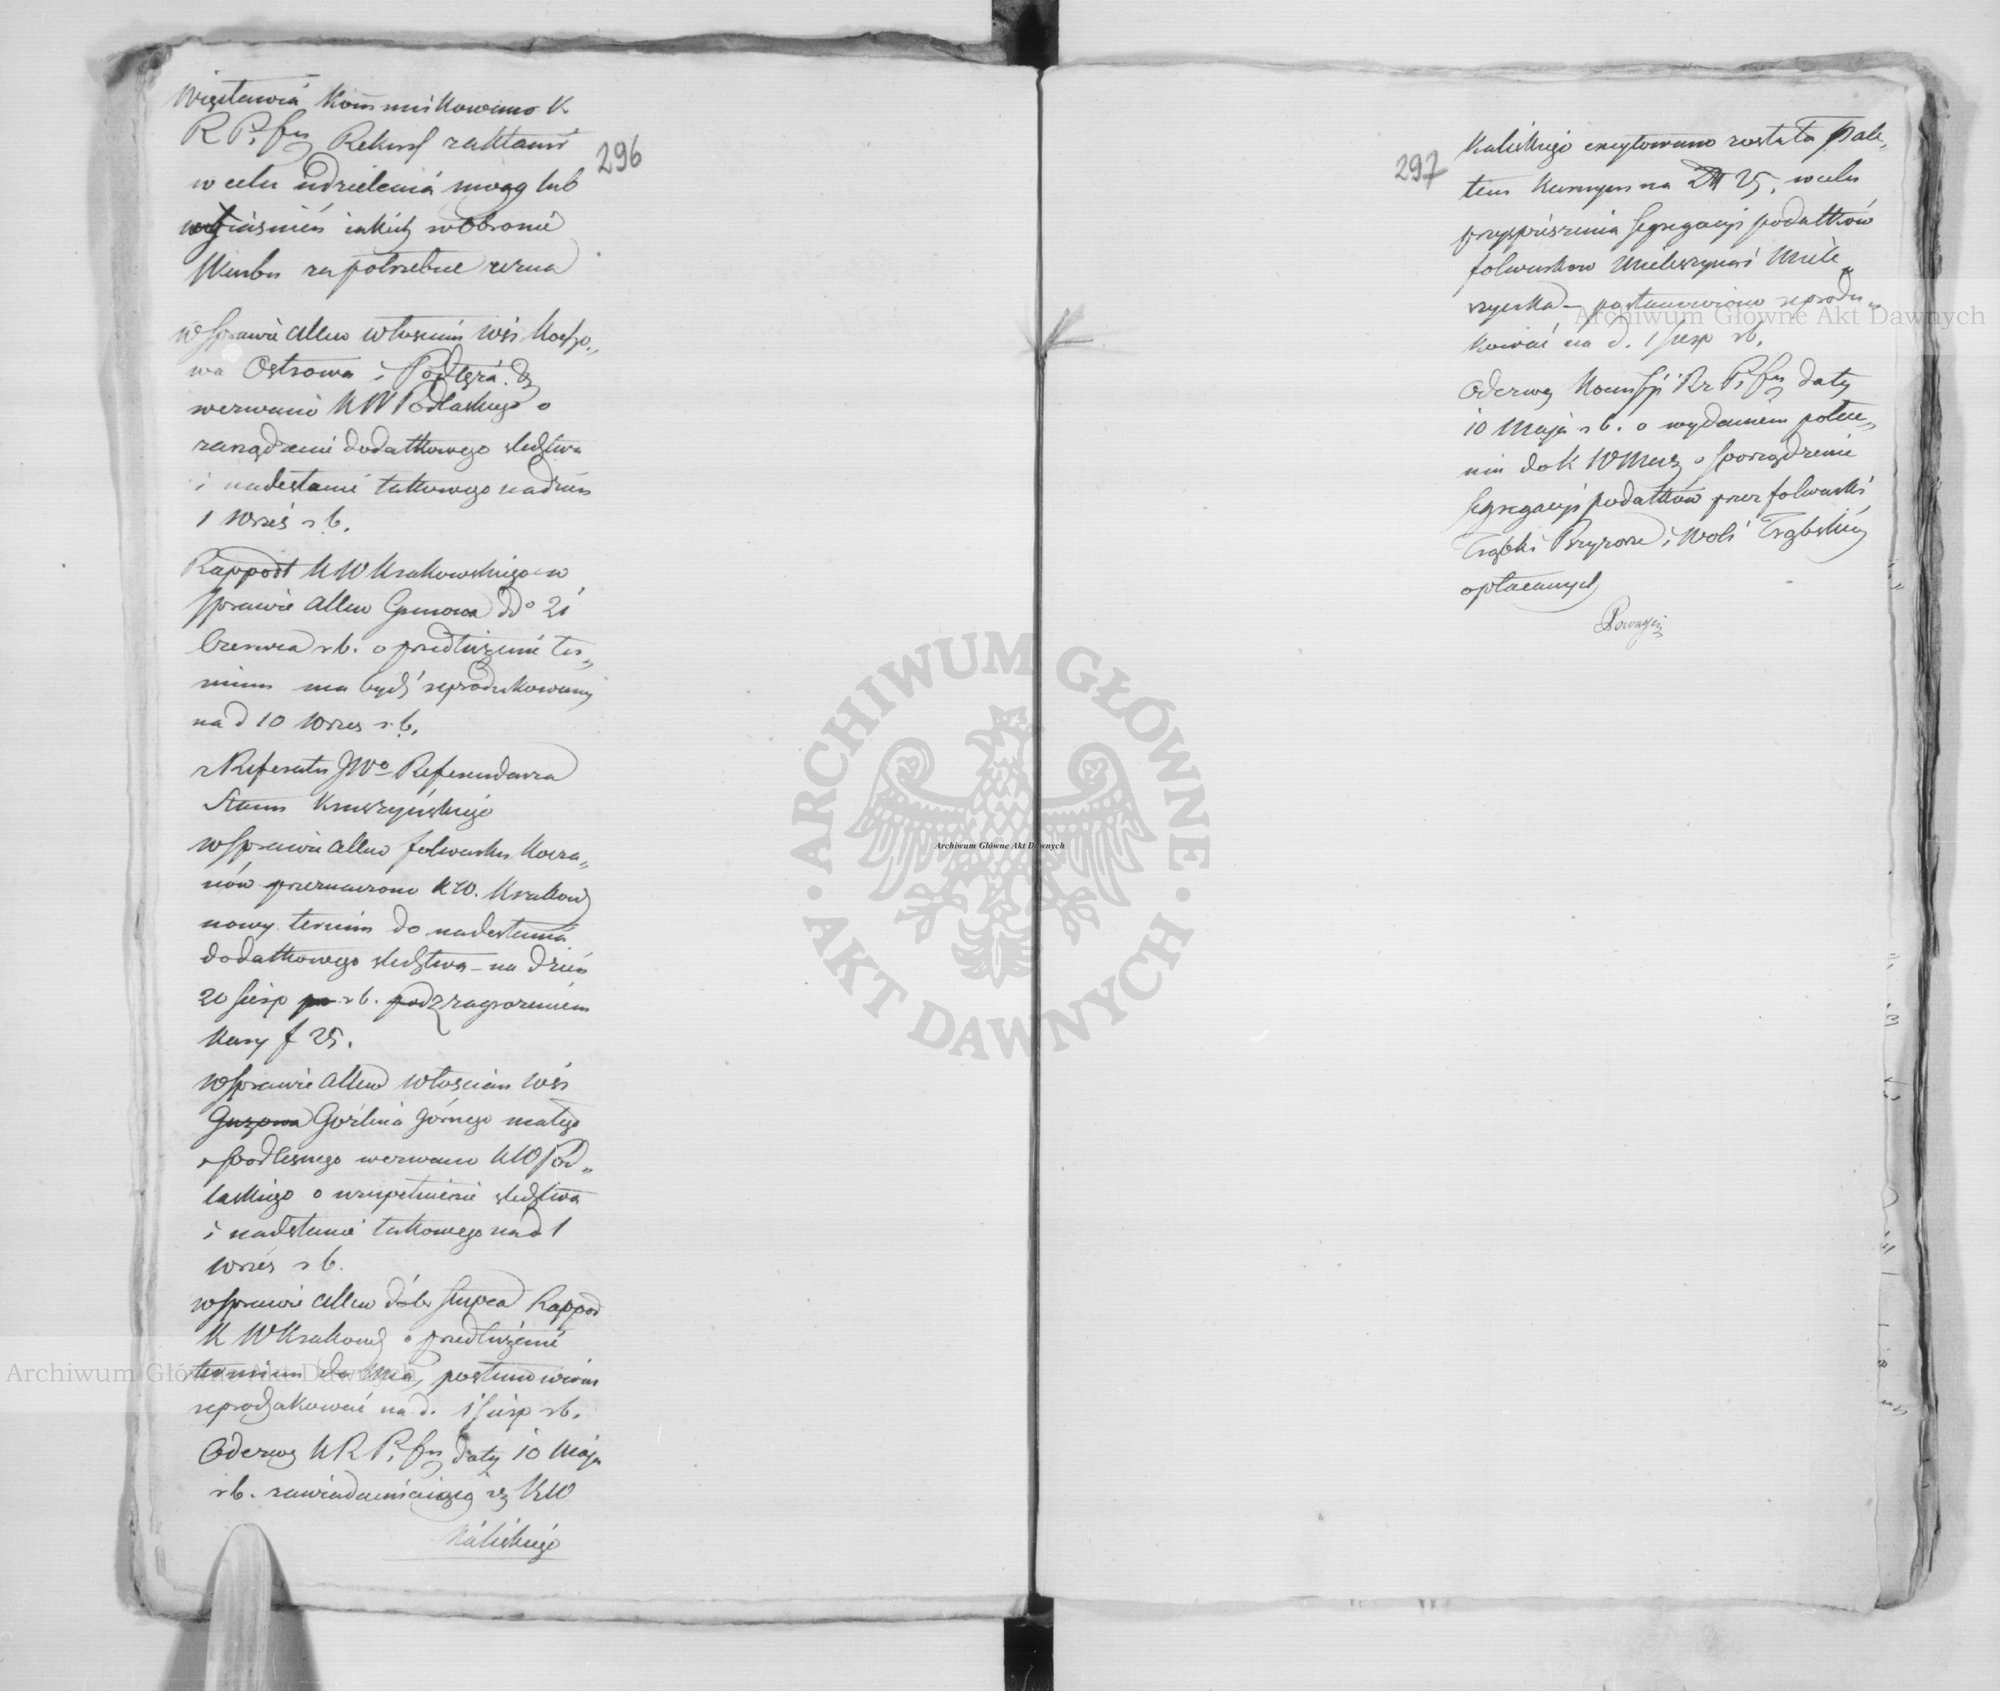 296
R P. i sk Rekurs
w celu udzielenia mogą lub
wyjaśnień jakich w obronie
Skarbu za potrzebne uzna
w sprawie allew włościan wsi
wa Ostrowa i
wezwanie KW Podlaskiego o
zarządzenie dodatkowego śledztwa
i nadesłanie takowego na dzień
1 Wrześ rb.
Rapport KW Krakowskiego w
sprawie allew ddo 21
Czerwca rb. o przedłużenie ter„
minu ma bydź reprodukowany
na d 10 Wrześ rb.
z Referatu JWo Referendarza
Stanu Kruszyńskiego
w sprawie allew folwarku Kocza„
nów przeznaczono KW. Krakow
nowy termin do nadesłania
dodatkowego śledztwa – na dzień
20 Sierp rb. pod zagrożeniem
kary f 25.
w sprawie allew włościan wsi
Guzowa Goźlina górnego małego
i podlesnego wezwano KW Pod„
laskiego o uzupełnienie śledztwa
i nadesłanie takowego na d 1
Wrześ rb.
w sprawie allew dóbr Słupca Rapport
K W Krakows o przedłużenie
terminu postanowiono
reprodukować na d. 1 Sierp rb.
Odezwę K R P. i sk daty 10 Maja
rb. zawiadamiającą iż KW
Kaliskiego
297
Kaliskiego excytowano została pale„
tem karnym na 25. w celu
przyspieszenia segregacji podatków
folwarków Mieleszyna i Miele„
szynka – postanowiono reprodu„
kować na d. 1 Sierp rb.
Odezwę Kommssji Rz P. i sk daty
10 Maja rb. o wydaniem polece„
nia do K W Maz o sporządzenie
segregacji podatków przez folwarki
Trąbki Brzyrowe i Woli Trąbskiej
opłacanych
Archiwum Główne Akt Dawnych
ARCHIWUM GŁÓWNE · AKT DAWNYCH ·
Archiwum Główne Akt Dawnych
Archiwum Główne Akt Dawnych